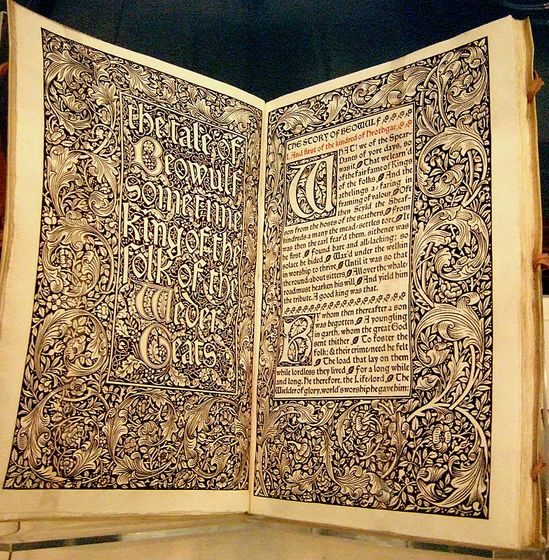 the tale of
Beowulf
sometime
king of the
folk of the
Weder
Geats
THE STORY OF BEOWULF
I. And first of the kindred of Hrothgar.
WHAT! we of the Spear-
Danes of yore days, so
was it
That we learn'd
of the fair fame of kings
of the folks
And the
athelings a-faring in
framing of valour.
Oft
then Scyld the Sheaf-
son from the hosts of the scathers,
From
kindreds a many the mead-settles tore;
It
was then the earl fear'd them, sithence was
he first
Found bare and all-lacking; so
solace he bided,
Wax'd under the welkin
in worship to thrive,
Until it was so that
the round about sitters,
All over the whale-
road must hearken his will,
And yield him
the tribute. A good king was that.
BY whom then thereafter a son
was begotten,
A youngling
in garth, whom the great God
sent thither
To foster the
folk; & their crime-need he felt
The load that lay on them
while lordless they lived
For a long while
and long. He therefore, the Life-lord,
The
Wielder of glory, world's worship he gave him: